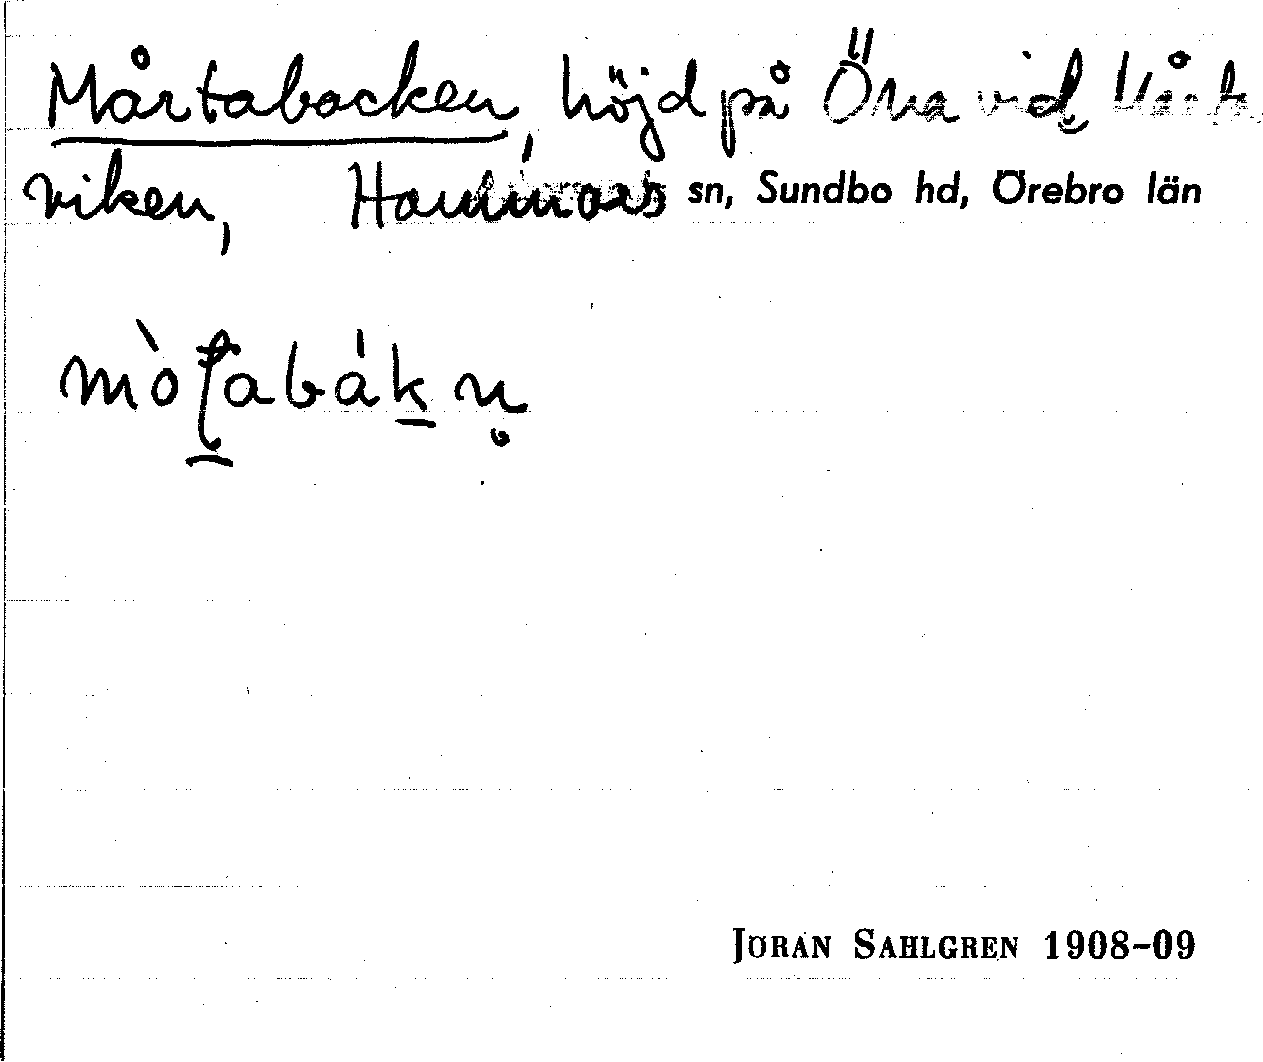 Mårtabacken, höjd på Öna vid Vårta
viken, Hammars sn, Sundbo hd, Örebro län
JÖRAN SAHLGREN 1908-09